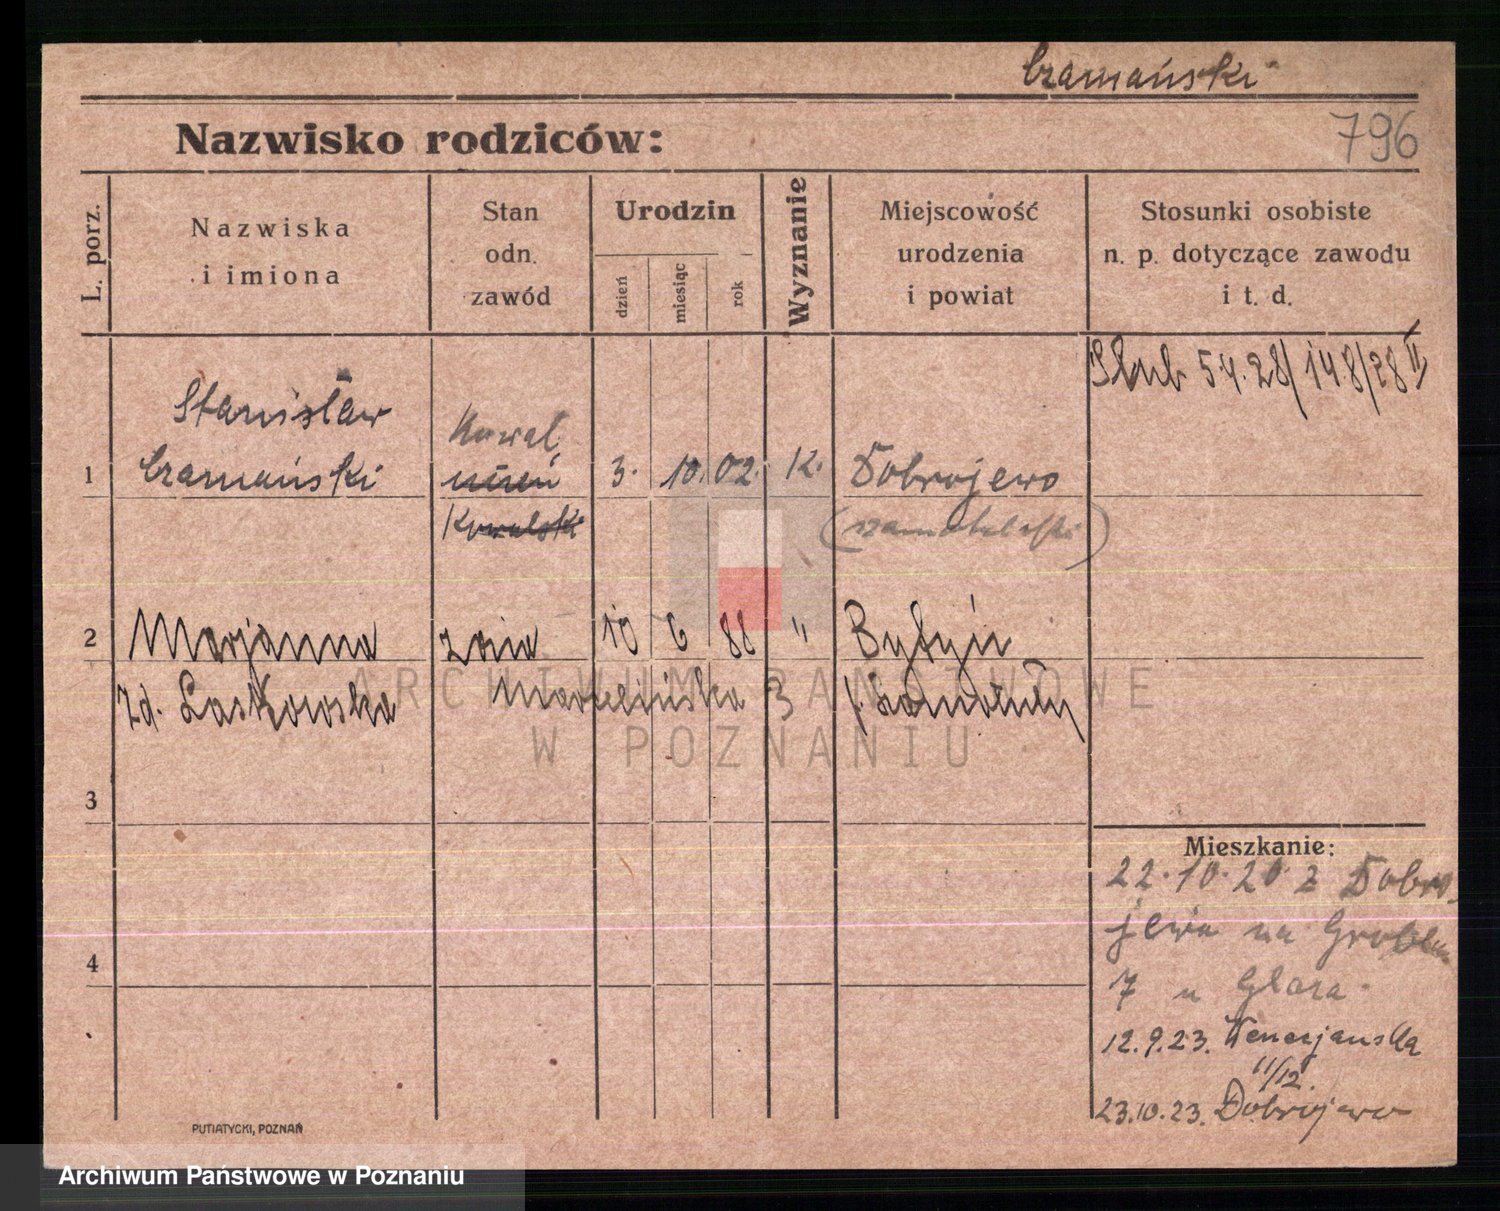 Czamański
796
Nazwisko rodziców:
L. porz.
Nazwiska
i imiona
Stan
odn.
zawód
Urodzin
dzień
miesiąc
rok
Wyznanie
Miejscowość
urodzenia
i powiat
Stosunki osobiste
n. p. dotyczące zawodu
i t. d.
Ślub 5.4.28/148/28 II
Stanisław
Kowal
1 Czamański uczeń 3. 10. 02. K. Dobrojewo
Kowalski (szamotulski)
2 Marjanna 10 6 88 " Bytyń
zd. Laskowska Marcelińska 3 p. Szamotuły
ARCHIWUM PAŃSTWOWE
W POZNANIU
3
Mieszkanie:
22.10.20 z Dobro-
jewa na Groblę
4
7 u Glara
12.9.23. Wenecjanska
11/12.
23.10.23. Dobrojewo
PUTIATYCKI, POZNAŃ
Archiwum Państwowe w Poznaniu